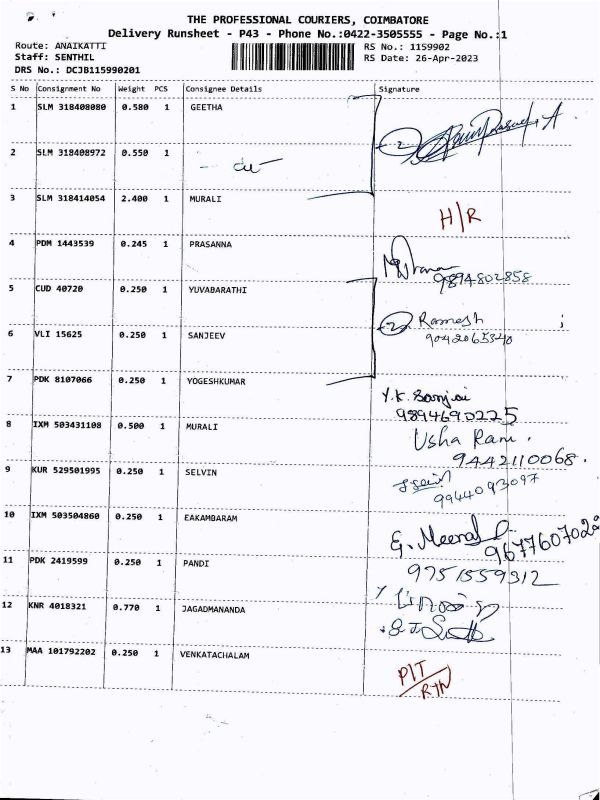 THE PROFESSIONAL COURIERS, COIMBATORE
Delivery Runsheet - P43 - Phone No.:0422-3505555 - Page No.:1
Route: ANAIKATTI RS No.: 1159902
Staff: SENTHIL RS Date: 26-Apr-2023
DRS No.: DCJB115990201
S No Consignment No Weight PCS Consignee Details Signature
1 SLM 318408080 0.580 1 GEETHA
2 SLM 318408972 0.550 1
3 SLM 318414054 2.400 1 MURALI H/R
4 PDM 1443539 0.245 1 PRASANNA
9894802858
5 CUD 40720 0.250 1 YUVABARATHI
2 Ramesh
6 VLI 15625 0.250 1 SANJEEV 9042065340
7 PDK 8107066 0.250 1 YOGESHKUMAR Y.K. Sanjai
9894690225
8 IXM 503431108 0.500 1 MURALI Usha Rani.
9442110068.
9 KUR 529501995 0.250 1 SELVIN
9944093097
10 IXM 503504860 0.250 1 EAKAMBARAM G. Meena
11 PDK 2419599 0.250 1 PANDI 9751559312
12 KNR 4018321 0.770 1 JAGADMANANDA
13 MAA 101792202 0.250 1 VENKATACHALAM P/T
RTN